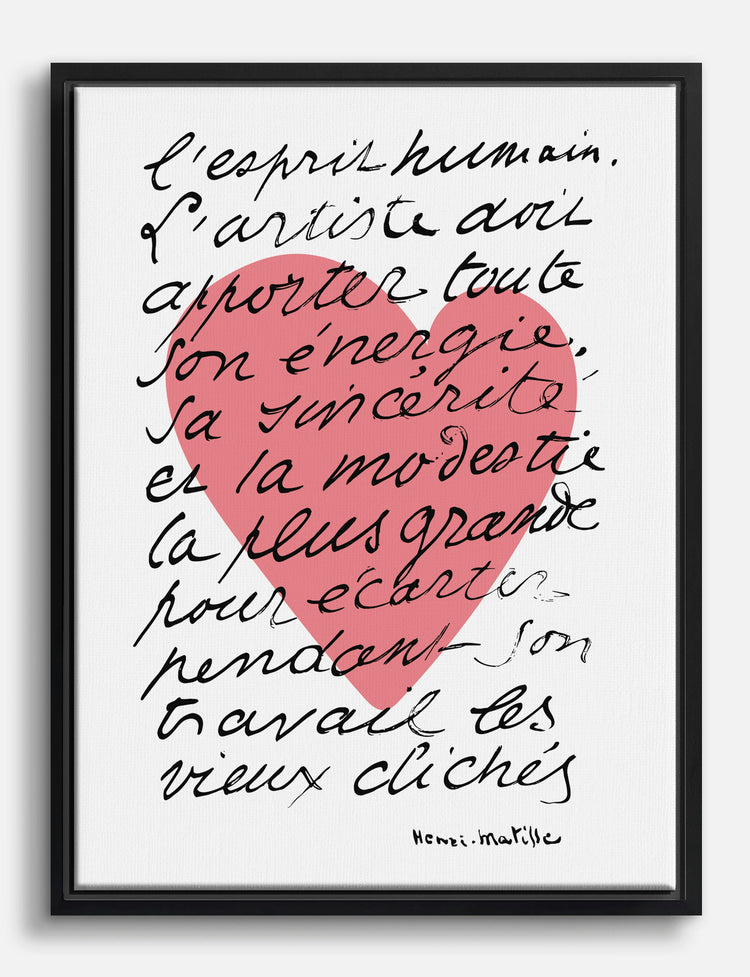 l'esprit humain.
L'artiste doit
apporter toute
son énergie,
sa sincérité
et la modestie
la plus grande
pour écarter
pendant son
travail les
vieux clichés
Henri-Matisse